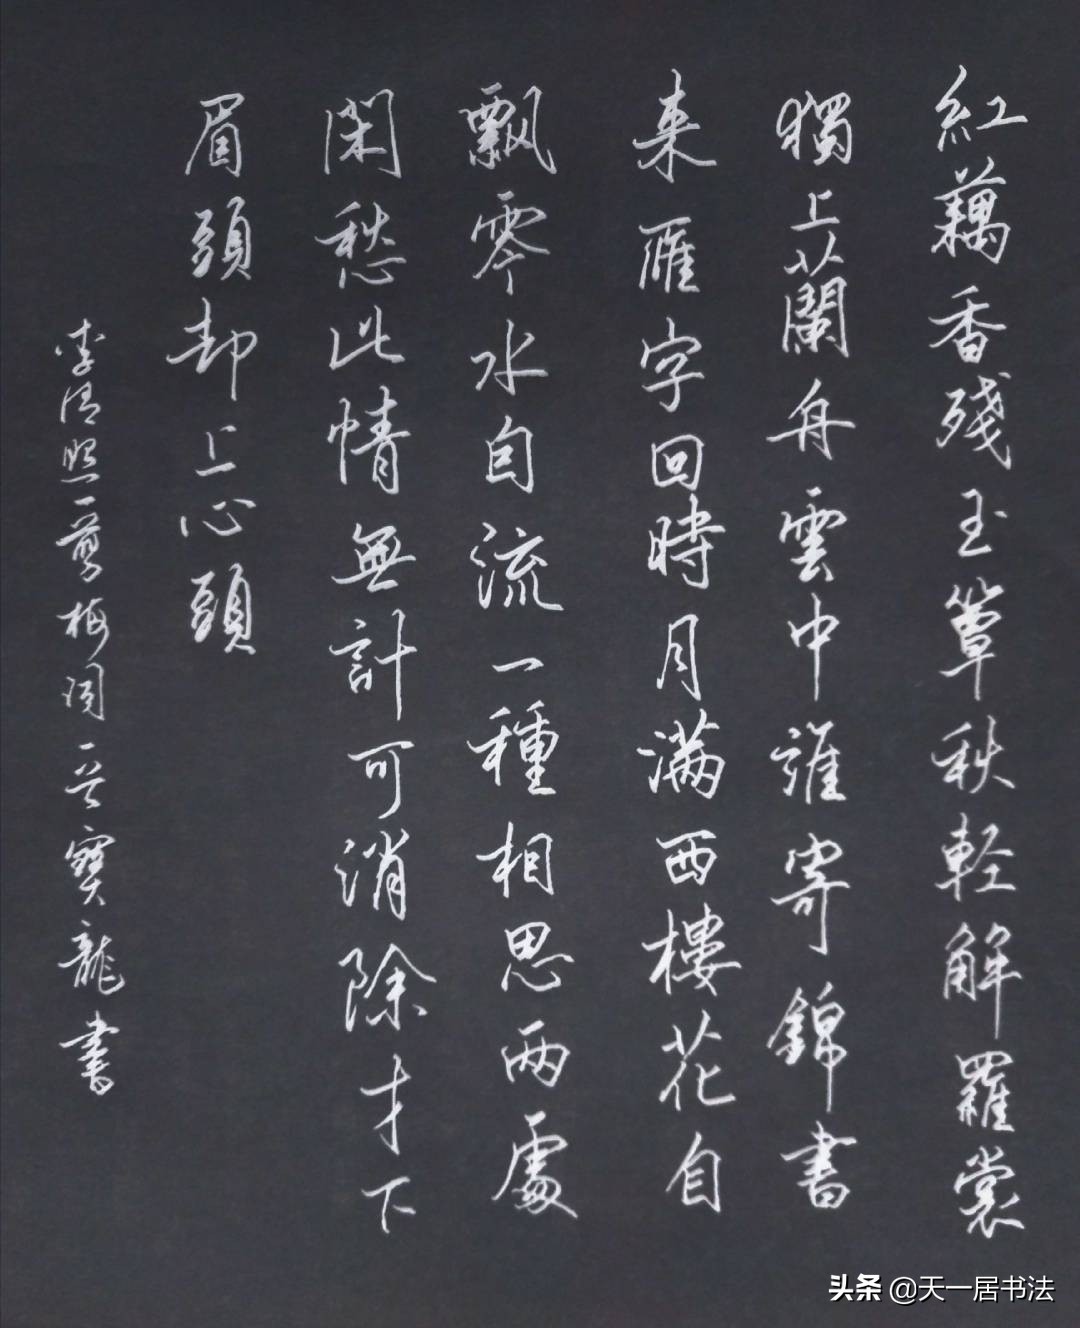 紅藕香殘玉簟秋輕解羅裳
獨上蘭舟雲中誰寄錦書
来雁字回時月満西樓花自
飄零水自流一種相思兩處
閑愁此情無計可消除才下
眉頭却上心頭
李清照一剪梅词 寶龍書
头条 @天一居书法